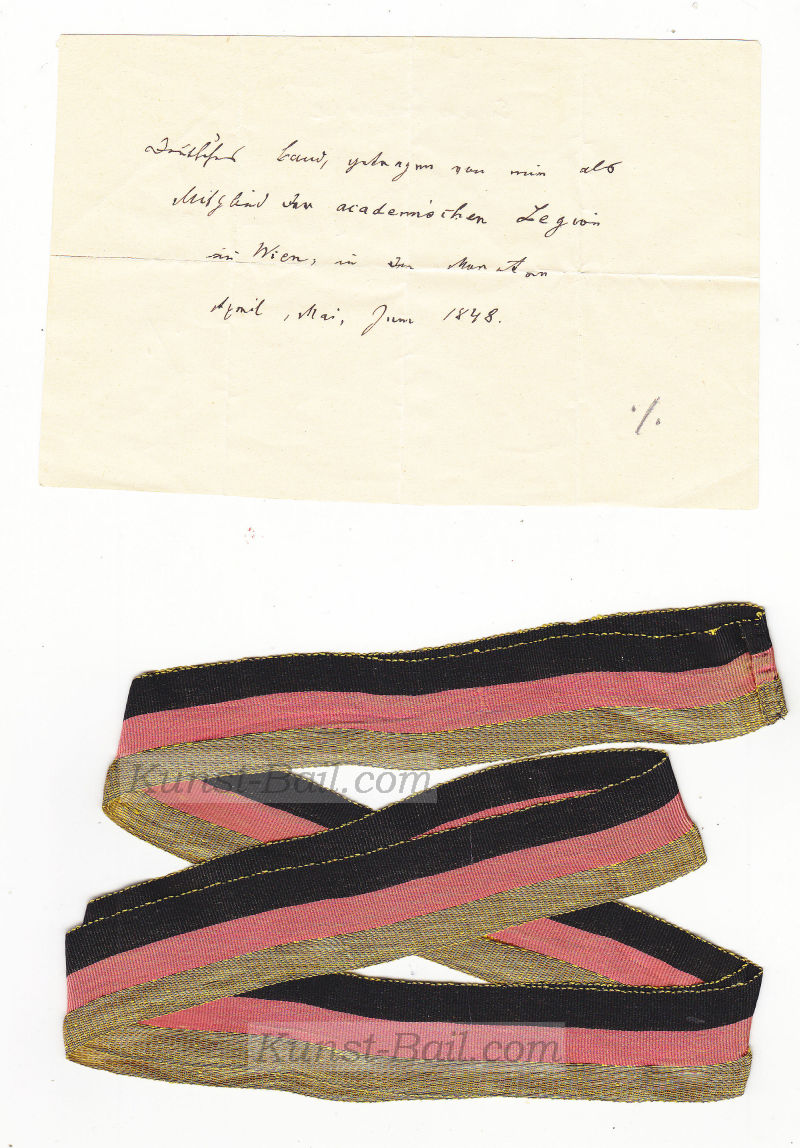 Deutsches Band, getragen von mir als
Mitglied der academischen Legion
in Wien, in den Monaten
April, Mai, Juni 1848.
·/.
Kunst-Bail.com
Kunst-Bail.com